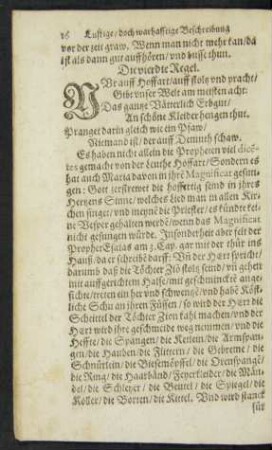 26 Lustige / doch warhafftige Beschreibung
vor der zeit graw. Wenn man nicht mehr kan / da
ist als dann gut auffhören / vnd busse thun.
Die vierdte Regel.
Vr auff Hoffart / auff stoltz vnd pracht /
Gibt vnser Welt am meisten acht:
Das gantze Bäwerlich Erbgut /
An schöne Kleider hengen thut.
Pranget darin gleich wie ein Pfaw /
Niemand ist / der auff Demuth schaw.
Es haben nicht allein die Propheten viel
tes gemacht von der Leuthe Hoffart / Sondern es
hat auch Maria davon in ihre Magnificat gesun-
gen: Gott zerstrewet die hoffertig seind in ihres
Hertzens Sinne / welches Lied man in allen Kir-
chen singet / vnd meyne die Priester / es kündte kei-
ne Vesper gehalten werdē / wenn da das Magnificat
nicht gesungen würde. Insonderheit aber seit der
Prophet Esaias am 3. Cap. gar mit der thür ins
Hauß / da er schreibt darff: Vn der Herr spricht /
darumb daß die Töchter Ziō stoltz seind / vn gehen
mit auffgerichtem Halse / mit geschminckte ange-
sichte / treten ein her vnd schwentzē / vnd habē Köst-
liche Schu an ihren Füssen / so wird der Herr die
Scheittel der Töchter Zion kahl machen / vnd der
Herr wird ihre geschmeide weg nemmen / vnd die
Heffte / die Spangen / die Ketten / die Armspan-
gen / die Hauben / die Flittern / die Gebreme / die
Schnürlein / die Biesemöpffel / die Orenspange
die Ring / die Haarbänd / Feyerkleider / die Män-
del / die Schleyer / die Beutel / die Spiegel / die
Koller / die Borten / die Kittel. Vnd wird stanck
für